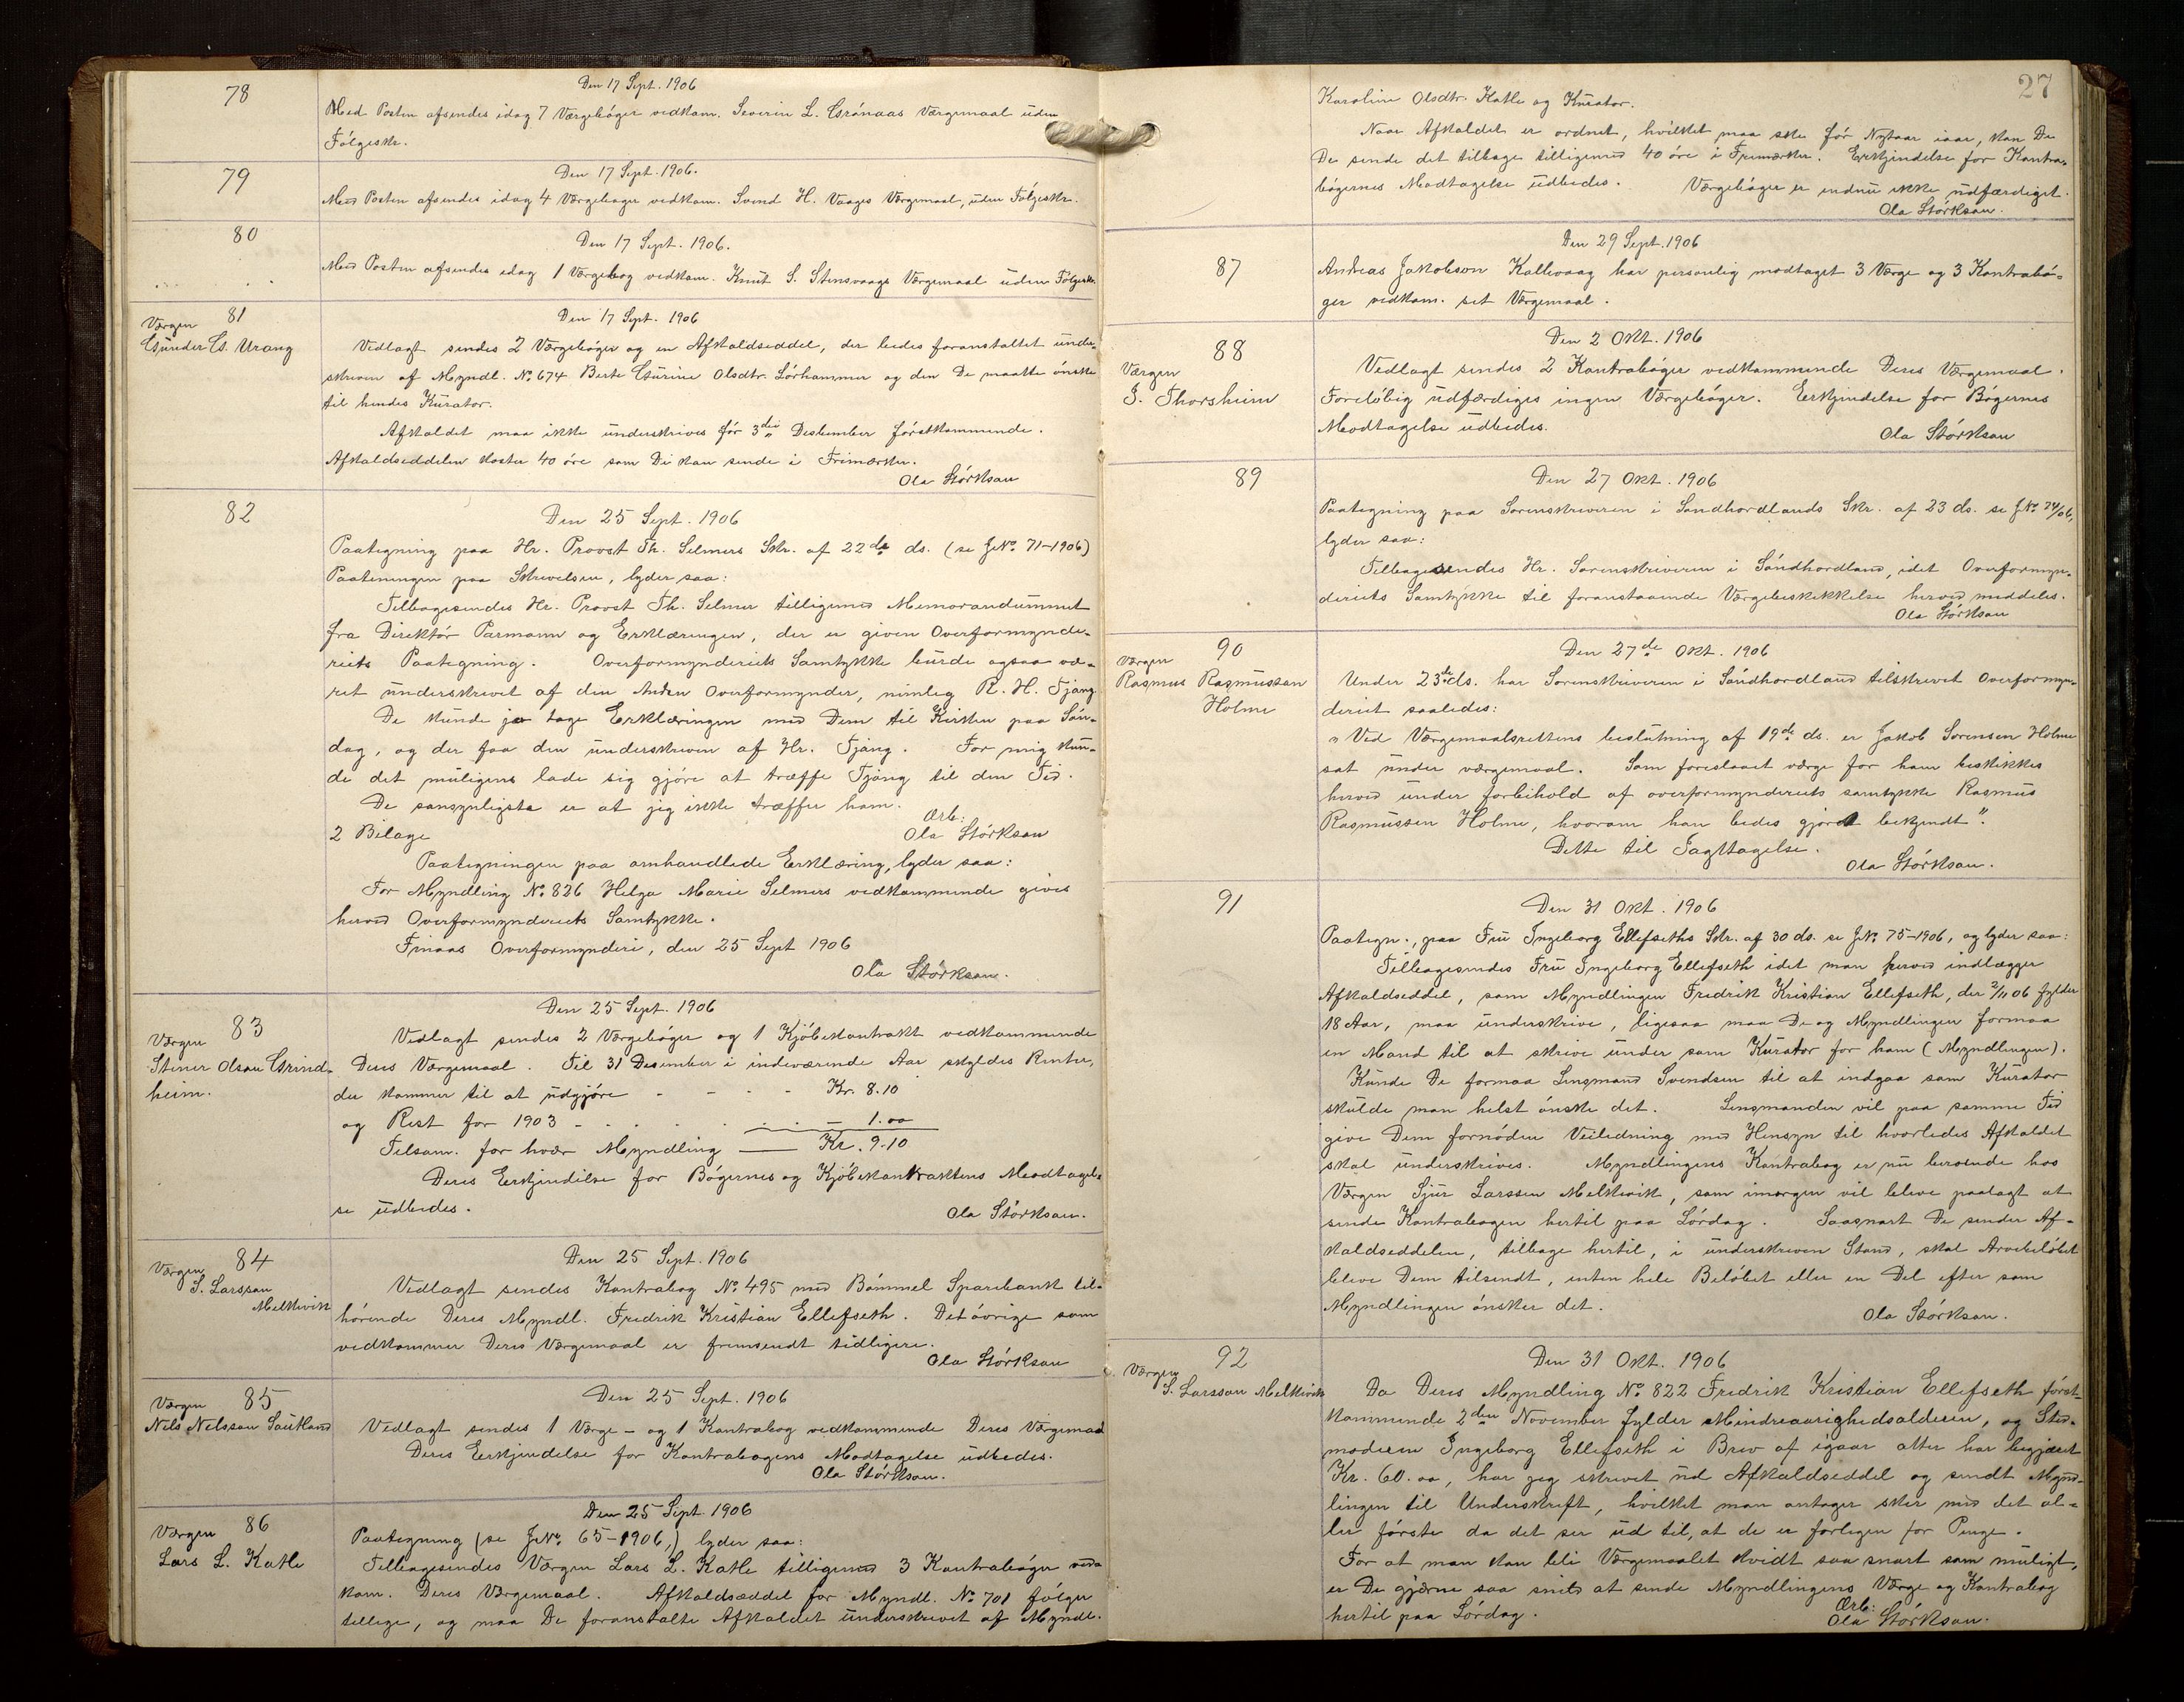 78
Den 17 Sept. 1906
Med Posten afsendes idag 7 Værgebøger vedkom. Severin L. Grønaas Værgemaal uden
Følgeskr.
79
Den 17 Sept. 1906.
Med Posten afsendes idag 4 Værgebøger vedkom. Svend H. Vaages Værgemaal, uden Følgeskr.
80
Den 17 Sept. 1906.
Med Posten afsendes idag 1 Værgebog vedkom. Knut S. Stensvaags Værgemaal uden Følgeskr.
81
Værgen
Gunder G. Urang
Den 17 Sept. 1906
Vedlagt sendes 2 Værgebøger og en Afkaldseddel, der bedes foranstaltet under-
skreven af Myndl. No 674 Berte Gurine Olsdtr. Lørhammer og den De maatte ønske
til hendes Kurator.
Afkaldet maa ikke underskrives før 3die Desember førstkommende.
Afkaldseddelen koster 40 øre som De kan sende i Frimærker.
Ola Størkson
82
Den 25 Sept. 1906
Paategning paa Hr. Provst Th. Selmers Skr. af 22de ds. (se J.No. 71-1906)
Paateningen paa Skrivelsen, lyder saa:
Tilbagesendes Hr. Provst Th. Selmer tilligemed Memorandummet
fra Direktør Parmann og Erklæringen, der er given Overformynde-
riets Paategning. Overformynderiets Samtykke burde ogsaa væ-
ret underskrevet af den Anden Overformynder, nimlig R. H. Tjang.
De kunde jo tage Erklæringen med Dem til Kirken paa Søn-
dag, og der faa den underskreven af Hr. Tjang. For mig kun-
de det muligens lade sig gjøre at træffe Tjang til den Tid.
De sansynligste er at jeg ikke træffer ham.
Ærb:
2 Bilage
Ola Størkson
Paategningen paa omhandlede Erklæring, lyder saa:
For Myndling No. 826 Helga Marie Selmers vedkommende gives
herved Overformynderiets Samtykke.
Finaas Overformynderi, den 25 Sept 1906
Ola Størkson.
83
Værgen
Steiner Olson Grind-
heim.
Den 25 Sept. 1906
Vedlagt sendes 2 Værgebøger og 1 Kjøbekontrakt vedkommende
Deres Værgemaal. Til 31 Desember i indeværende Aar skyldes Renter,
der kommer til at udgjøre - - - - Kr. 8.10
og Rest for 1903 - - - - - 1.00
Tilsam. for hver Myndling — Kr. 9.10
Deres Erkjendelse for Bøgernes og Kjøbekontraktens Modtagel-
se udbedes.
Ola Størkson.
84
Værgen
S. Larsson
Melkevik
Den 25 Sept. 1906
Vedlagt sendes Kontrabog No. 495 med Bømmel Sparebank til-
hørende Deres Myndl. Fredrik Kristian Ellefseth. Det øvrige som
vedkommer Deres Værgemaal er fremsendt tidligere.
Ola Størkson
85
Værgen
Nils Nelsson Sautland
Den 25 Sept. 1906
Vedlagt sendes 1 Værge- og 1 Kontrabog vedkommende Deres Værgemaal
Deres Erkjendelse for Kontrabogens Modtagelse udbedes.
Ola Størkson.
86
Værgen
Lars L. Katle
Den 25 Sept. 1906
Paategning (se J.No. 65-1906,) lyder saa:
Tilbagesendes Værgen Lars L. Katle tilligemed 3 Kontrabøger ved-
kom. Deres Værgemaal. Afkaldsæddel for Myndl. No. 701 følger
tillige, og maa De foranstalte Afkaldet underskrevet af Myndl.
27
Karoline Olsdtr. Katle og Kurator.
Naar Afkaldet er ordnet, hvilket maa ske før Nytaar iaar, kan De
De sende det tilbage tilligemed 40 øre i Frimærker. Erkjendelse for Kontra-
bøgernes Modtagelse udbedes. Værgebøger er endnu ikke udfærdiget.
Ola Størkson.
87
Den 29 Sept. 1906
Andreas Jakobson Kallevaag har personlig modtaget 3 Værge og 3 Kontrabø-
ger vedkom. sit Værgemaal.
88
Værgen
S. Thorsheim
Den 2 Okt. 1906
Vedlagt sendes 2 Kontrabøger vedkommende Deres Værgemaal.
Foreløbig udfærdiges ingen Værgebøger. Erkjendelse for Bøgernes
Modtagelse udbedes.
Ola Størkson
89
Den 27 Okt. 1906
Paategning paa Sorenskriveren i Søndhordlands Skr. af 23 ds. se J.No. 74/06,
lyder saa:
Tilbagesendes Hr. Sorenskriveren i Søndhordland, idet Overformyn-
deriets Samtykke til foranstaaende Værgebeskikkelse herved meddeles.
Ola Størkson
90
Værgen
Rasmus Rasmussen
Holme
Den 27de Okt. 1906
Under 23de ds. har Sorenskriveren i Søndhordland tilskrevet Overformyn-
deriet saaledes:
"Ved Værgemaalsrettens beslutning af 19de ds. er Jakob Sorensen Holme
sat under værgemaal. Som foreslaaet værge for ham beskikkes
herved under forbehold af overformynderiets samtykke Rasmus
Rasmussen Holme, hvorom han bedes gjort bekjendt".
Dette til Iagttagelse.
Ola Størkson.
91
Den 31 Okt. 1906
Paategn., paa Fru Ingeborg Ellefseths Skr. af 30 ds. se J.No. 75-1906, og lyder saa:
Tilbagesendes Fru Ingeborg Ellefseth idet man herved indlægger
Afkaldseddel, som Myndlingen Fredrik Kristian Ellefseth, der 2/11 06 fylder
18 Aar, maa underskrive, ligesaa maa De og Myndlingen formaa
en Mand til at skrive under som Kurator for ham (Myndlingen).
Kunde De formaa Lensmand Svendsen til at indgaa som Kurator
skulde man helst ønske det. Lensmanden vil paa samme Tid
give Dem fornøden Veiledning med Hensyn til hvorledes Afkaldet
skal underskrives. Myndlingens Kontrabog er nu beroende hos
Værgen Sjur Larssen Melkevik, som imorgen vil bleve paalagt at
sende Kontrabogen hertil paa Lørdag. Saasnart De sender Af-
kaldseddelen, tilbage hertil, i underskreven Stand, skal Arvebeløbet
bleve Dem tilsendt, enten hele Beløbet eller en Del efter som
Myndlingen ønsker det.
Ola Størkson.
92
Værgen
S. Larsson Melkevik
Den 31 Okt. 1906
Da Deres Myndling No. 822 Fredrik Kristian Ellefseth først-
kommende 2den November fylder Mindreaarighedsalderen, og Sted-
moderen Ingeborg Ellefseth i Brev af igaar atter har begjæret
Kr. 60.00, har jeg skrevet ud Afkaldseddel og sendt Mynd-
lingen til Underskrift, hvilket man antager sker med det al-
ler første da det ser ud til, at de er forlegen for Penge.
For at man kan bli Værgemaalet kvidt saa snart som muligt,
er De gjærne saa snild at sende Myndlingens Værge og Kontrabog
hertil paa Lørdag.
Ærb:
Ola Størkson.